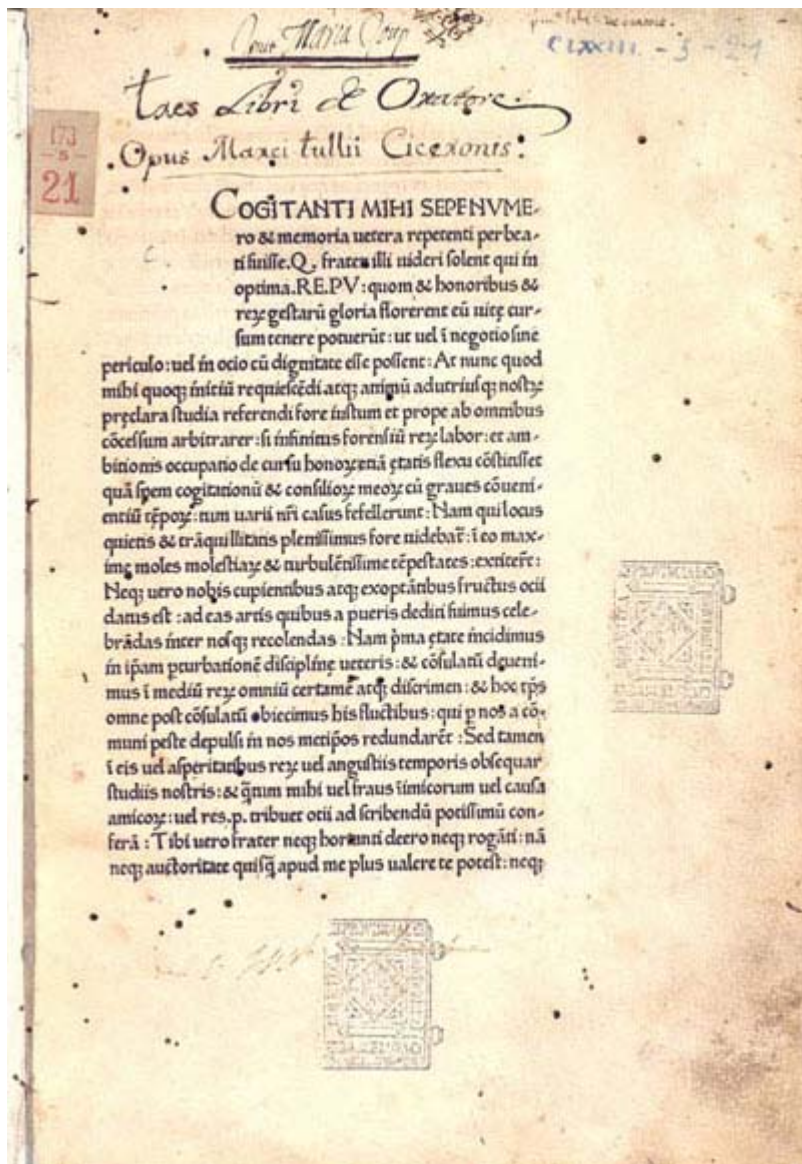 CLXXIII - 5 - 21
taes Libri de Oratore.
Opus Marci tullii Ciceronis:
173
-5-
21
COGITANTI MIHI SEPENVME-
ro & memoria uetera repetenti perbea-
ti fuisse. Q. frater illi uideri solent qui in
optima. RE.PV: quom & honoribus &
reꝝ gestarū gloria florerent eū uitę cur-
sum tenere potuerūt: ut uel ī negotio sine
periculo: uel in ocio cū dignitate esse possent: At nunc quod
mihi quoqꝫ initiū requiescēdi atqꝫ animū ad utriusqꝫ nostꝝ
pręclara studia referendi fore iustum et prope ab omnibus
cōcessum arbitrarer: si infinitus forensiū reꝝ labor: et am-
bitionis occupatio de cursu honoꝝ etiā ętatis flexu cōstitisset
quā spem cogitationū & consilioꝝ meoꝝ cū graues cōueni-
entiū tēpoꝝ: tum uarii nr̄i casus fefellerunt: Nam qui locus
quietis & trāquillitatis plenissimus fore uidebat̄: ī eo max-
imę moles molestiaꝝ & turbulētissime tēpestates: extiter̄t:
Neqꝫ uero nobis cupientibus atqꝫ exoptātibus fructus ocii
datus est: ad eas artis quibus a pueris dediti fuimus cele-
brādas inter nosqꝫ recolendas: Nam p̄ma ętate incidimus
in ip̄am ꝑturbationē disciplinę ueteris: & cōsulatū deueni-
mus ī mediū reꝝ omniū certamē atqꝫ discrimen: & hoc tp̄s
omne post cōsulatū obiecimus his fluctibus: qui ꝑ nos a cō-
muni peste depulsi in nos metip̄os redundarēt: Sed tamen
ī eis uel asperitatibus reꝝ uel angustiis temporis obsequar
studiis nostris: & q̄tum mihi uel fraus īimicorum uel causa
amicoꝝ: uel res.p. tribuet otii ad scribendū potissimū con-
ferā: Tibi uero frater neqꝫ hortanti deero neqꝫ rogāti: nā
neqꝫ auctoritate quisq̄ apud me plus ualere te potest: neqꝫ